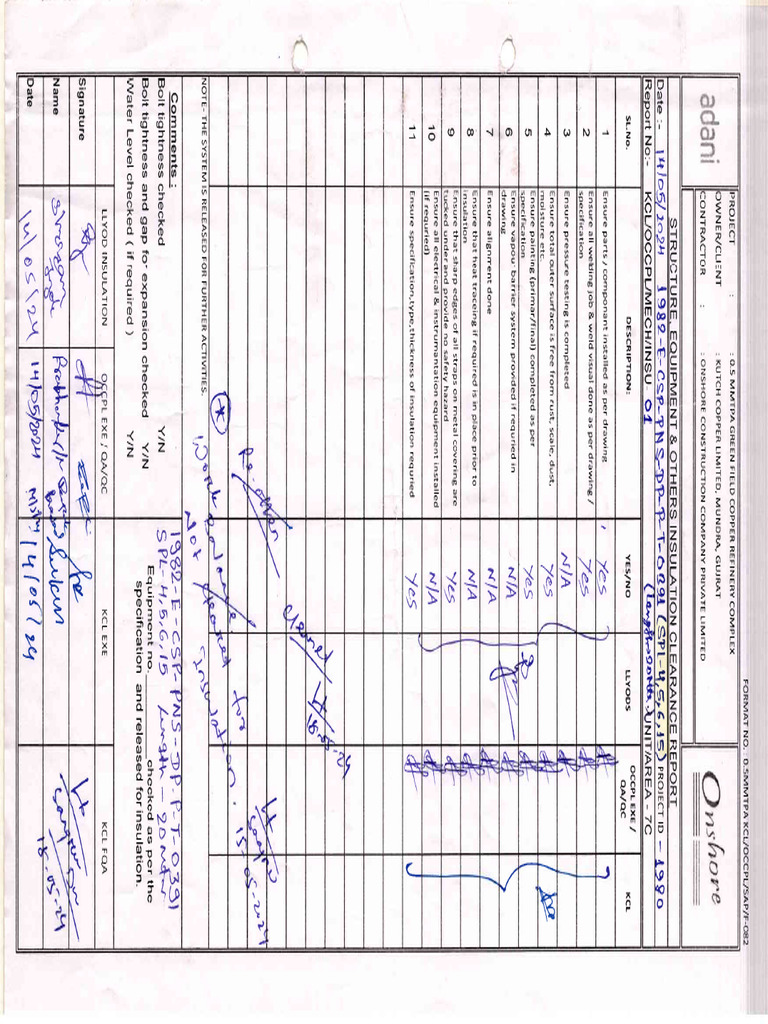 FORMAT NO. : 0.5MMTPA KCL/OCCPL/SAP/F-082
adani
PROJECT : : 0.5 MMTPA GREEN FIELD COPPER REFINERY COMPLEX
OWNER/CLIENT : KUTCH COPPER LIMITED, MUNDRA, GUJRAT
CONTRACTOR : : ONSHORE CONSTRUCTION COMPANY PRIVATE LIMITED
Onshore
STRUCTURE, EQUIPMENT & OTHERS INSULATION CLEARANCE REPORT
Date :- 14/05/2024 1982-E-CSP-PNS-DP.P.T-0391 (SPL-4,5,6,15) PROJECT ID - 1980
Report No:- KCL/OCCPL/MECH/INSU 01 UNIT/AREA - 7C
SL.No. DESCRIPTION: YES/NO LLYODS OCCPL EXE / QA/QC KCL
1 Ensure parts / componant installed as per drawing Yes
2 Ensure all welding job & weld visual done as per drawing / specification Yes
3 Ensure pressure testing is completed N/A
4 Ensure total outer surface is free from rust, scale, dust, moisture etc. Yes
5 Ensure painting (primar/final) completed as per specification Yes
6 Ensure vapour barrier system provided if requried in drawing N/A
7 Ensure alignment done Yes
8 Ensure that heat traceing if required is in place prior to insulation N/A
9 Ensure that sharp edges of all straps on metal covering are tucked under and provide no safety hazard Yes
10 Ensure all electrical & instrumantation equipment installed (if requried) N/A
11 Ensure specification,type,thickness of insulation requried Yes
18-05-24
15-05-2024
Not cleared for Insulation.
NOTE- THE SYSTEM IS RELEASED FOR FURTHER ACTIVITIES.
Comments :
1982-E-CSP-PNS-DP.P.T-0391
Bolt tightness checked Y/N
SPL-4,5,6,15 Length - 20 Mtr
Bolt tightness and gap for expansion checked Y/N
Equipment no. checked as per the
Water Level checked ( if required ) Y/N
specification and released for insulation.
LLYOD INSULATION OCCPL EXE / QA/QC KCL EXE KCL FQA
Signature
Name
Date 14/05/24 14/05/2024 14/05/24 18-05-24